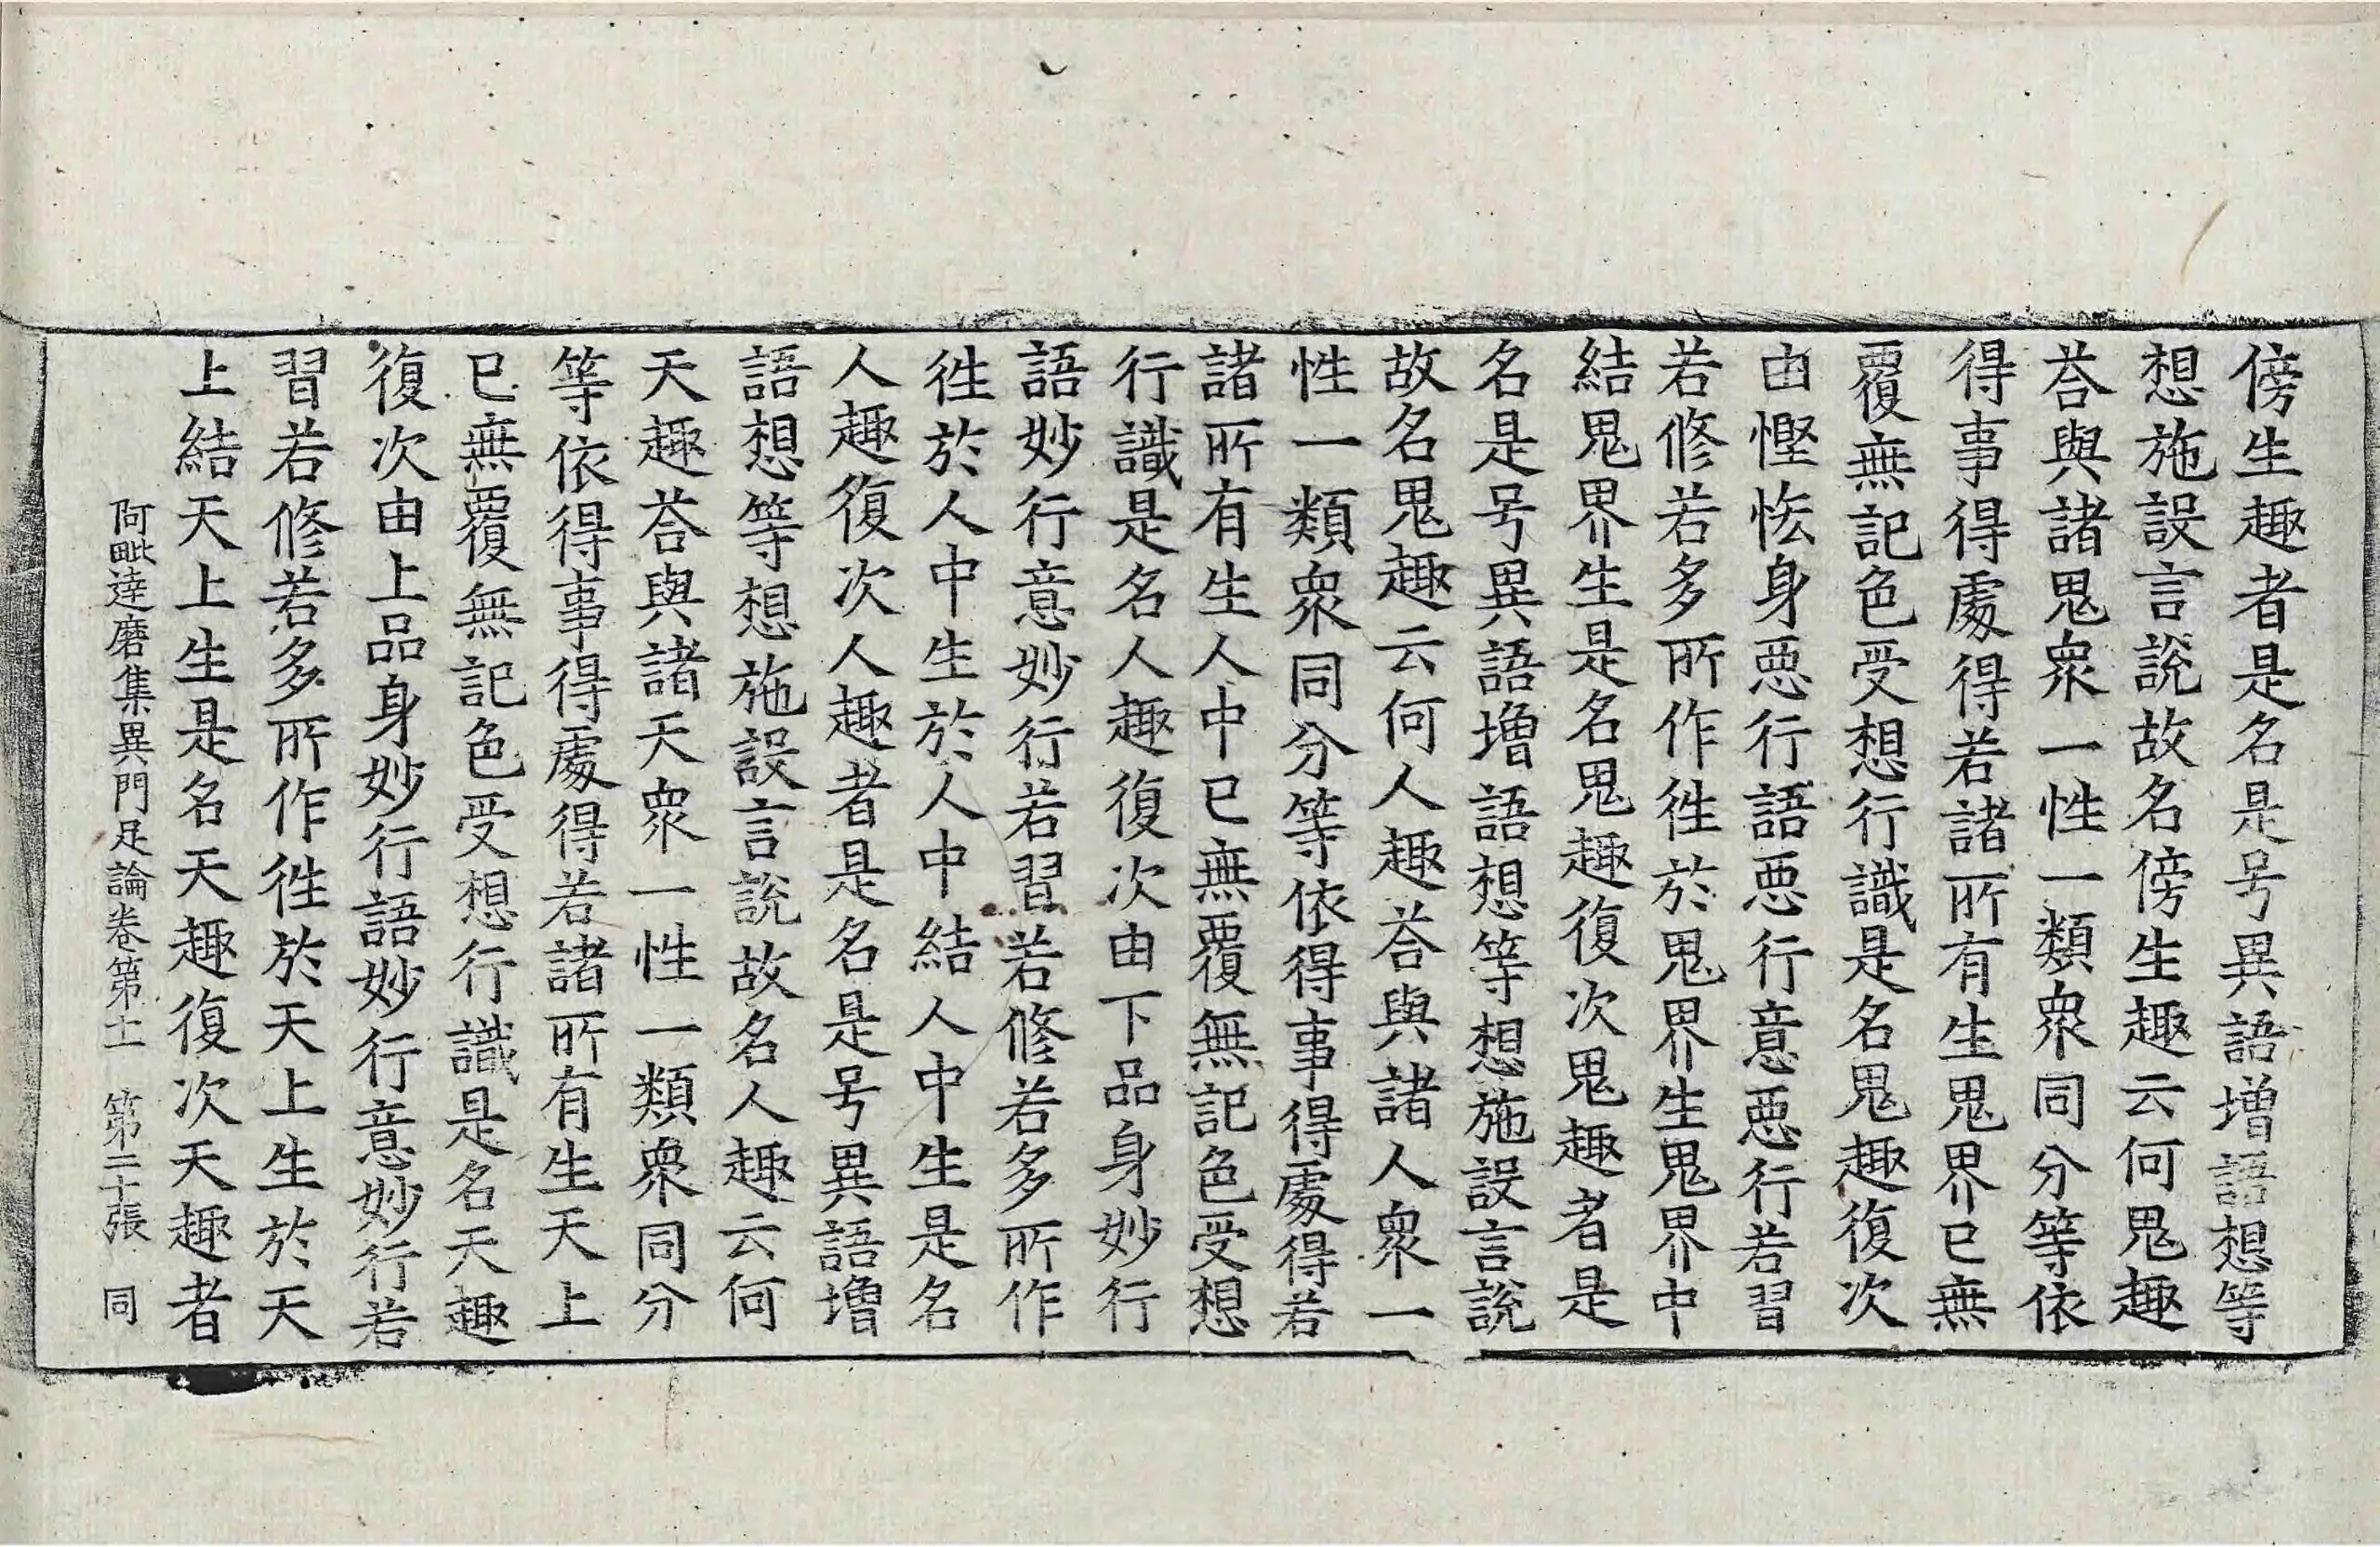 傍生趣者是名是号異語増語想等
想施設言說故名傍生趣云何鬼趣
荅與諸鬼衆一性一類衆同分等依
得事得處得若諸所有生鬼界已無
覆無記色受想行識是名鬼趣復次
由慳恡身惡行語惡行意惡行若習
若修若多所作徃於鬼界生鬼界中
結鬼界生是名鬼趣復次鬼趣者是
名是号異語増語想等想施設言說
故名鬼趣云何人趣荅與諸人衆一
性一類衆同分等依得事得處得若
諸所有生人中已無覆無記色受想
行識是名人趣復次由下品身妙行
語妙行意妙行若習若修若多所作
徃於人中生於人中結人中生是名
人趣復次人趣者是名是号異語増
語想等想施設言說故名人趣云何
天趣荅與諸天衆一性一類衆同分
等依得事得處得若諸所有生天上
已無覆無記色受想行識是名天趣
復次由上品身妙行語妙行意妙行若
習若修若多所作徃於天上生於天
上結天上生是名天趣復次天趣者
阿毗達磨集異門足論卷第十一 第二十張 同